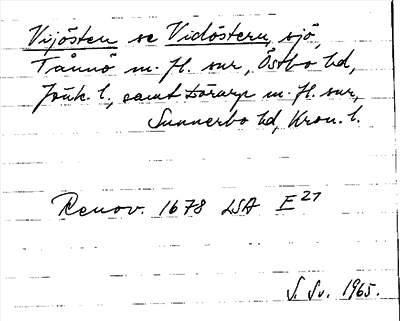 Vijösten se Vidöstern, sjö,
Tånnö m. fl. snr, Östbo hd,
Jönk. l., samt Dörarp m. fl. snr,
Sunnerbo hd, Kron. l.
Renov. 1678 LSA E 27
S. Sv. 1965.